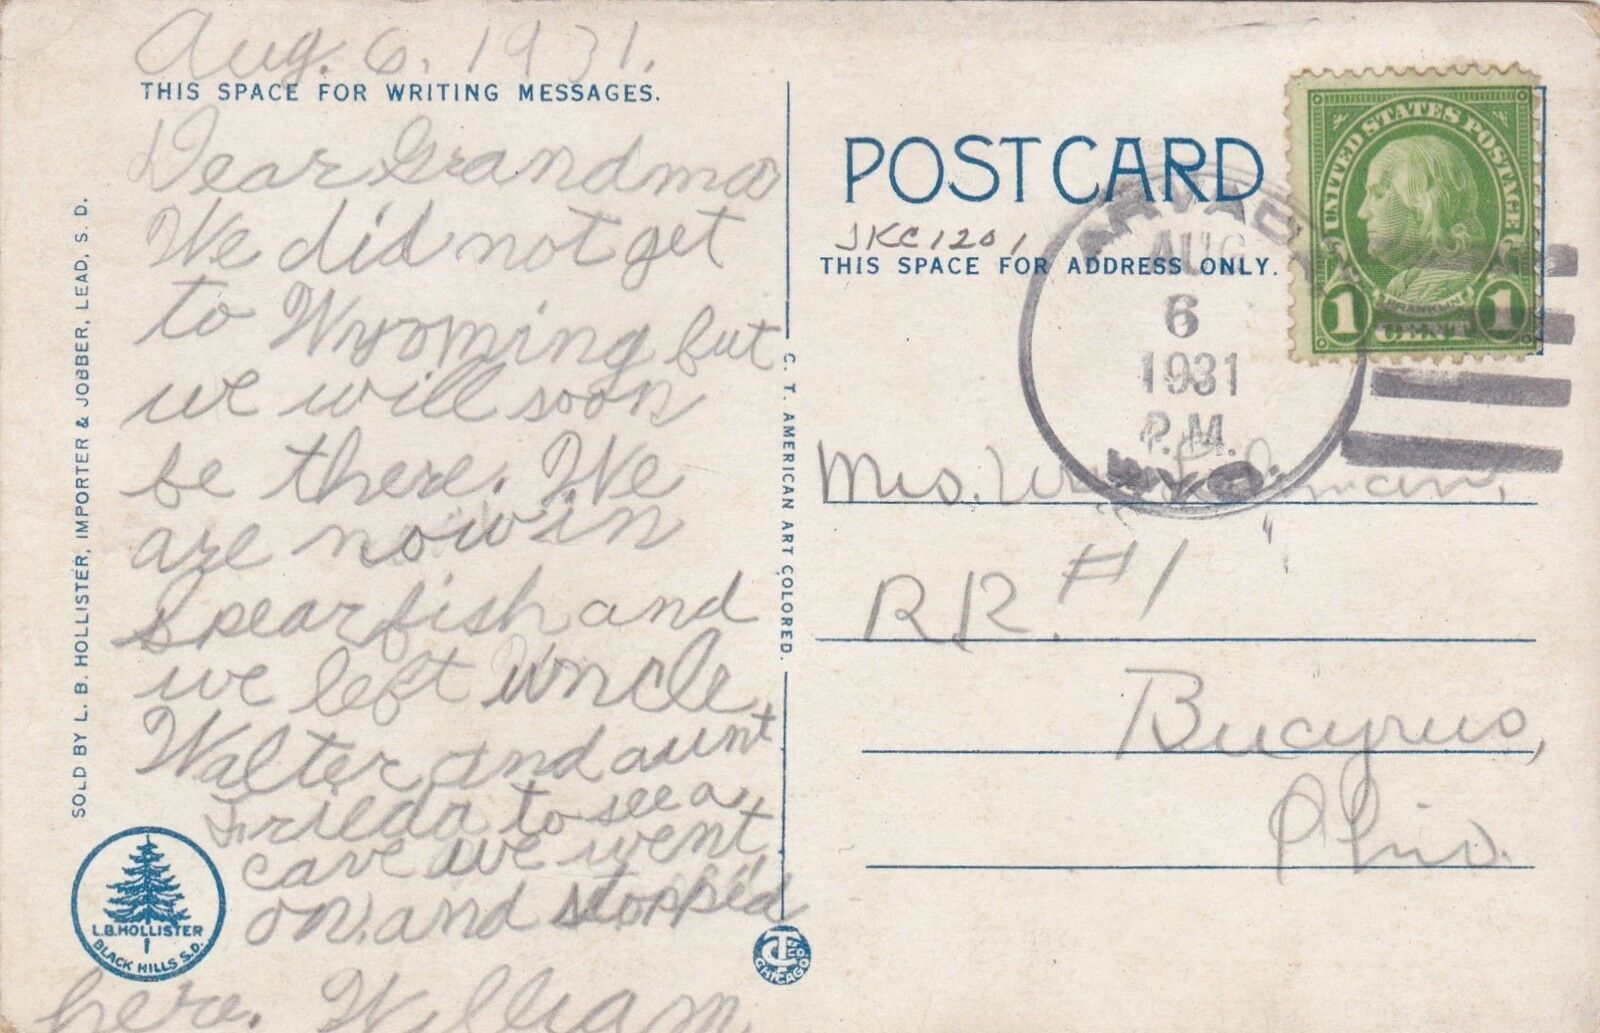 Aug. 6, 1931.
THIS SPACE FOR WRITING MESSAGES.
Dear Grandma
We did not get
to Wyoming but
we will soon
be there. We
are now in
Spearfish and
we left Uncle
Walter and aunt
Frieda to see a
cave we went
on, and stopped
here. William
SOLD BY L. B. HOLLISTER, IMPORTER & JOBBER, LEAD, S. D.
L.B. HOLLISTER
BLACK HILLS S.D.
C. T. AMERICAN ART COLORED.
CHICAGO
POST CARD
JKC1201
THIS SPACE FOR ADDRESS ONLY.
UNITED STATES POSTAGE
FRANKLIN
1 CENT 1
ARVADA
AUG
6
1931
P.M.
WYO.
Mrs.
RR. #1
Bucyrus,
Ohio.